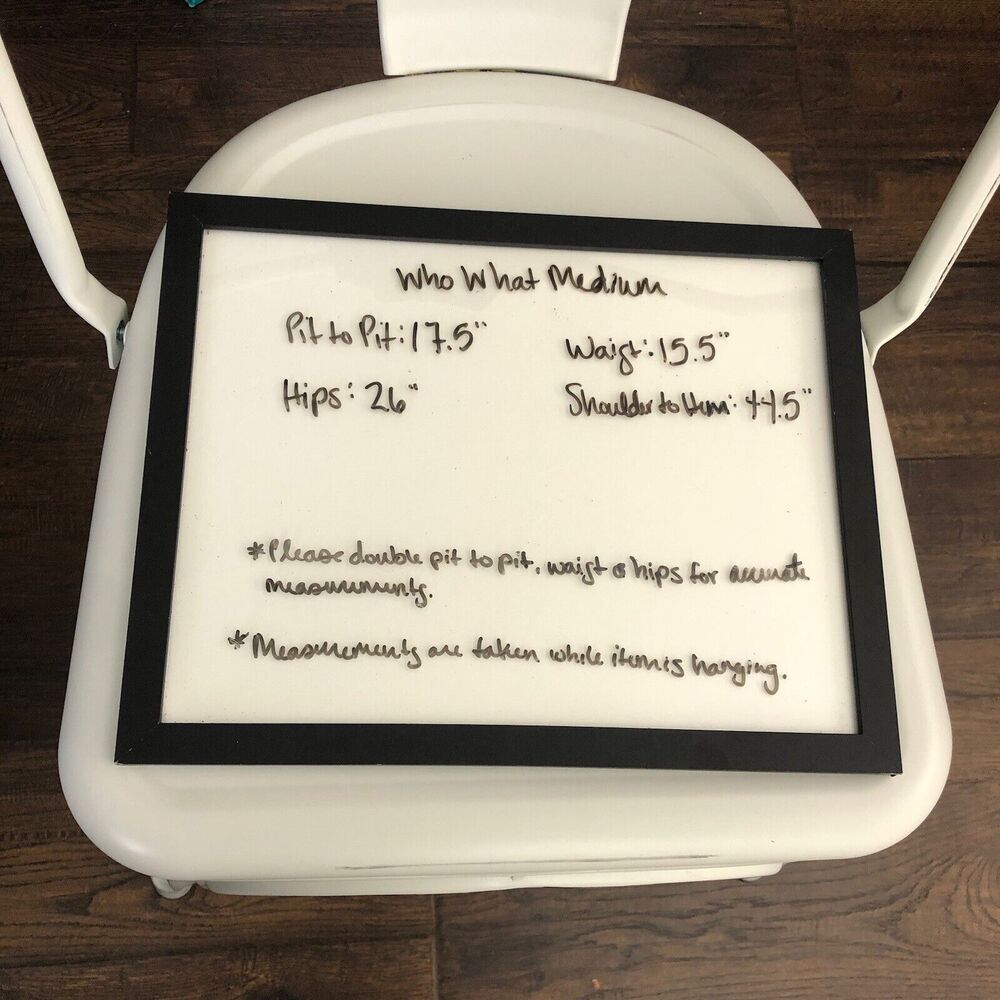 Who What Medium
Pit to Pit: 17.5" Waist: 15.5"
Hips: 26" Shoulder to Hem: 44.5"
*Please double pit to pit, waist & hips for accurate
measurements.
*Measurements are taken while item is hanging.